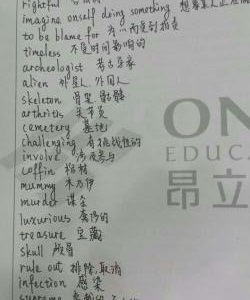 rightful
imagine onself doing something 想象某人正在做
to be blame for 为…而受到指责
timeless 不受时间影响的
archeologist 考古学家
alien 外星人 外国人
skeleton 骨架 骷髅
arthritis 关节炎
cemetery 墓地
challenging 有挑战性的
involve 涉及参与
coffin 棺材
mummy 木乃伊
murder 谋杀
luxurious 奢侈的
treasure 宝藏
skull 颅骨
rule out 排除,取消
infection 感染
supreme
ON
EDUC
昂立